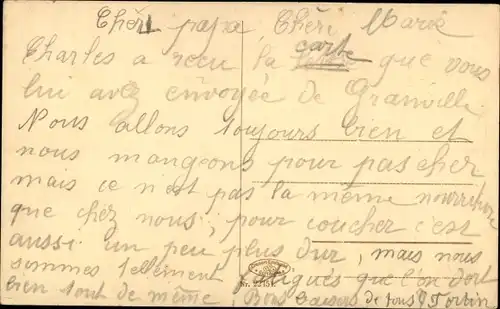 Chéri papa, Chéri Marie
Charles a recu la carte que vous
lui avez envoyée de Granville
Nous allons toujours bien et
nous mangeons pour pas cher
mais ce n'est pas la même nourriture
que chez nous, pour coucher c'est
aussi un peu plus dur, mais nous
sommes tellement fatigués que l'on dort
bien tout de même, Bons baisers de tous